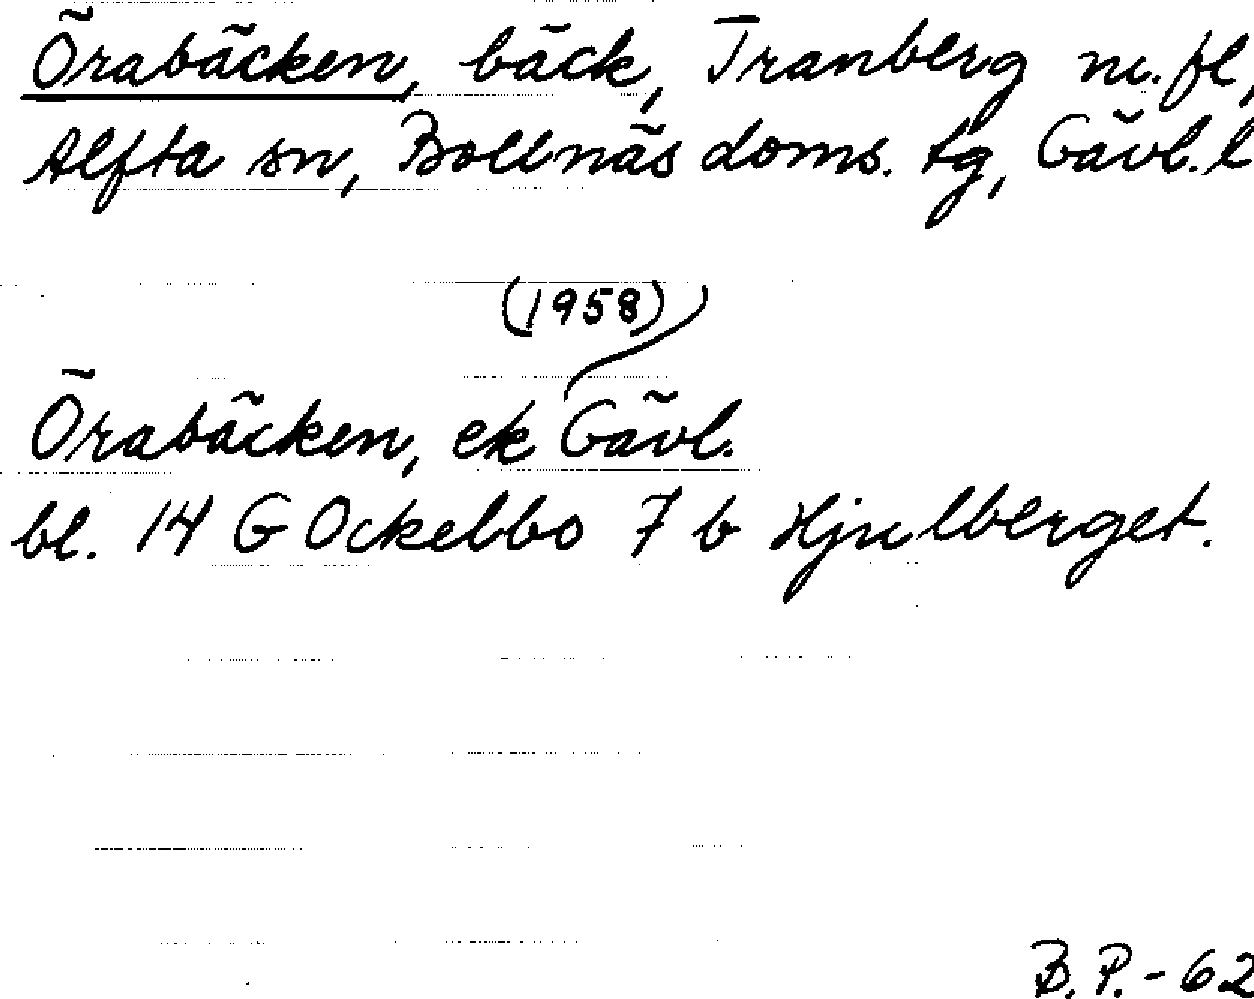 Örabäcken, bäck, Tranberg m.fl,
Alfta sn, Bollnäs doms. tg, Gävl. l
(1958)
Örabäcken, ek Gävl.
bl. 14 G Ockelbo 7 b Hjulberget.
B.P.-62